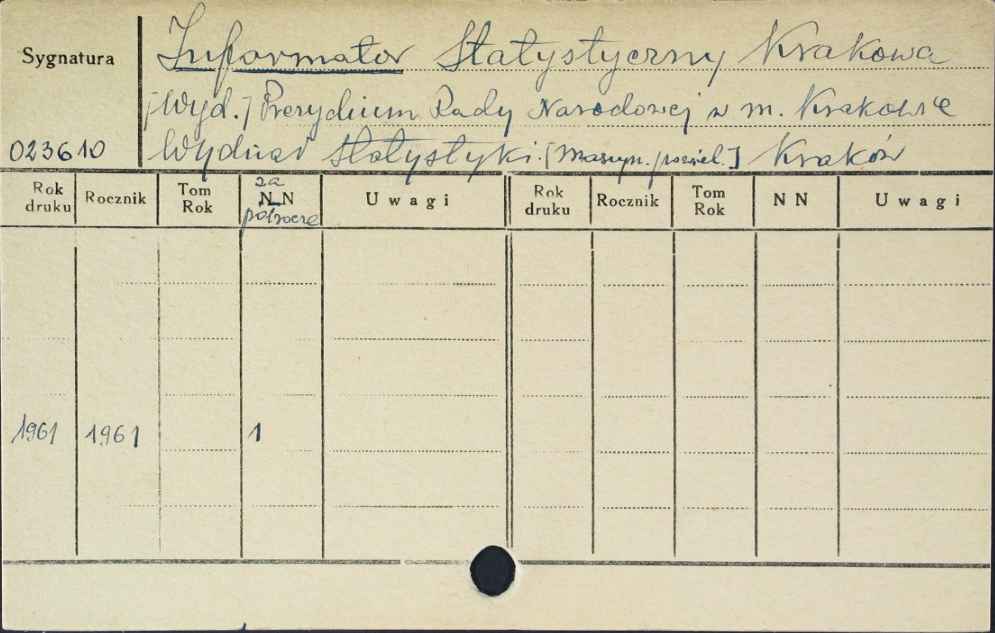 Sygnatura
Informator Statystyczny Krakowa
[Wyd.] Prezydium Rady Narodowej w m. Krakowie
023610
Wydział Statystyki. [Maszyn. powiel.] Kraków
Rok druku Rocznik Tom Rok za NN półrocze Uwagi Rok druku Rocznik Tom Rok NN Uwagi
1961 1961 1